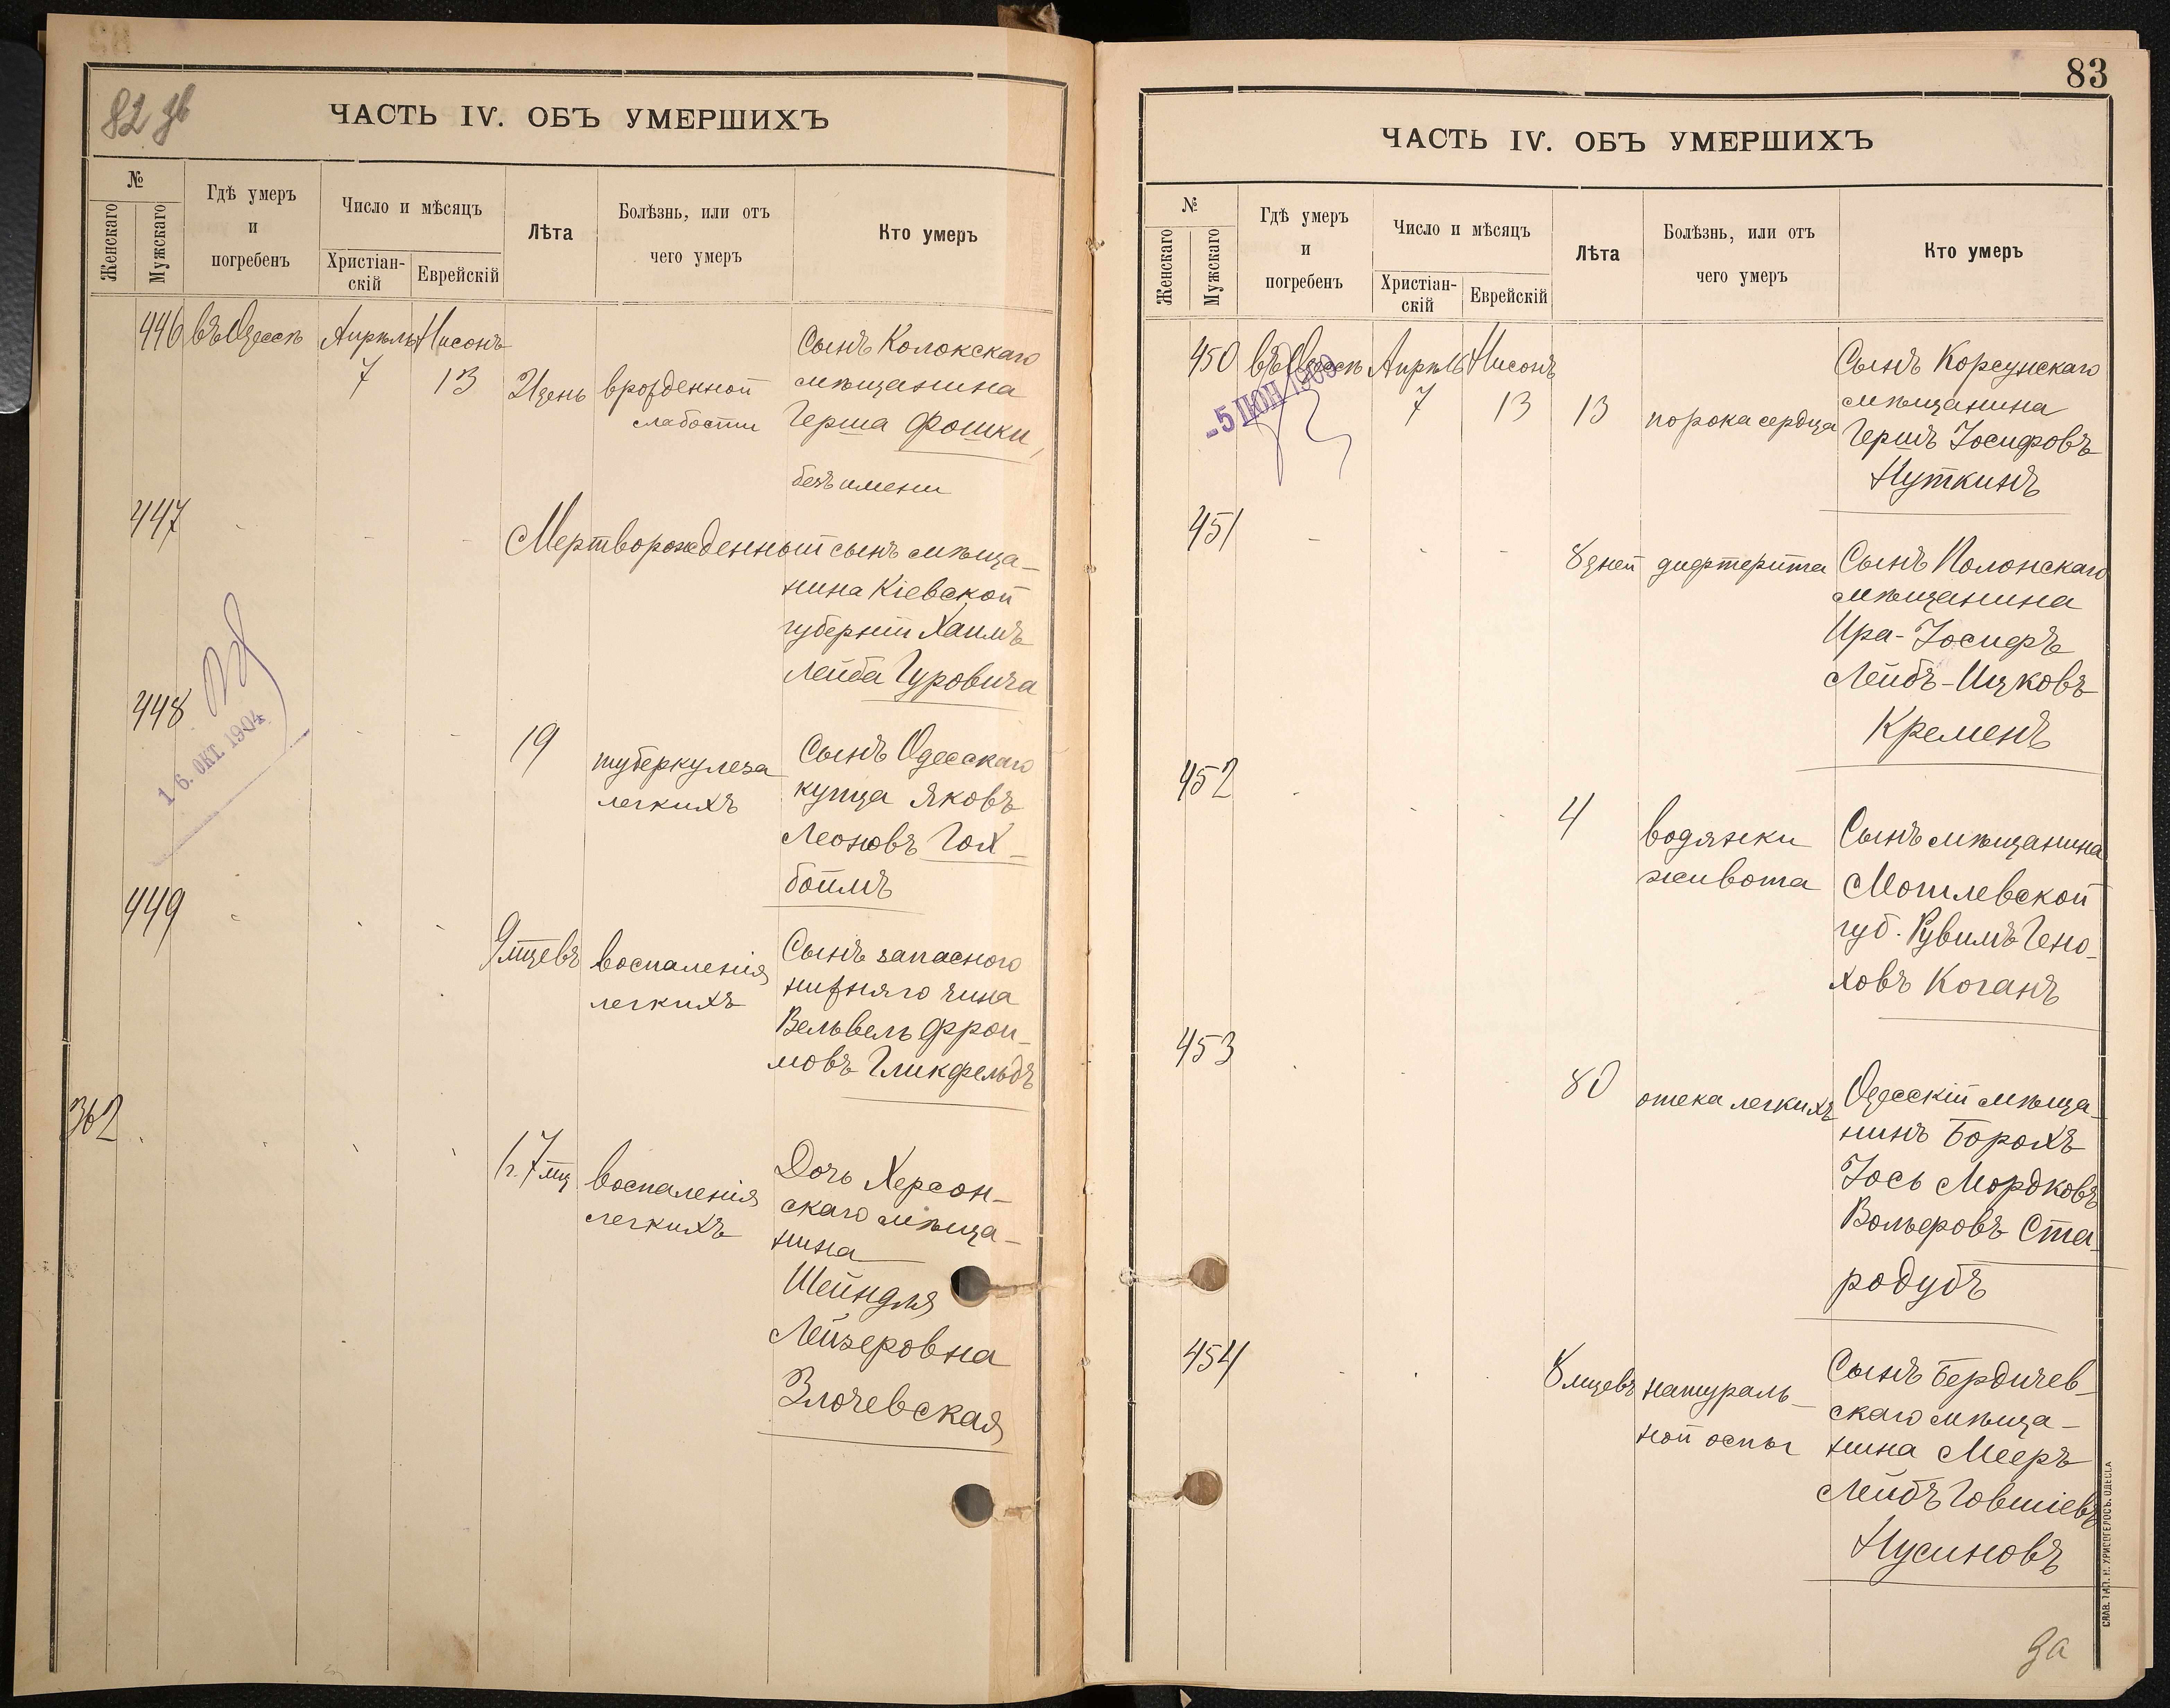 82 зв
ЧАСТЬ IV. ОБЪ УМЕРШИХЪ
№
Женскаго
Мужскаго
Гдѣ умеръ
и
погребенъ
Число и мѣсяцъ
Христіан-
скій
Еврейскій
Лѣта
Болѣзнь, или отъ
чего умеръ
Кто умеръ
446 въ Одессѣ Апрѣль Нисонъ
7 13 21 день врожденной
слабости
Сынъ Колокскаго
мѣщанина
Герша Фошки,
безъ имени
447
Мертворожденный сынъ мѣща-
нина Кіевской
губерніи Хаимъ
Лейба Гуровича
448
19 туберкулеза
легкихъ
Сынъ Одесскаго
купца Яковъ
Леоновъ Гох-
боймъ
16. ОКТ. 1904
449
9 мцевъ воспаленія
легкихъ
Сынъ запаснаго
нижняго чина
Вельвель Фрои-
мовъ Гликфельдъ
362
1 г. 7 мц воспаленія
легкихъ
Дочь Херсон-
скаго мѣща-
нина
Шейндля
Лейзеровна
Злочевская
83
ЧАСТЬ IV. ОБЪ УМЕРШИХЪ
№
Женскаго
Мужскаго
Гдѣ умеръ
и
погребенъ
Число и мѣсяцъ
Христіан-
скій
Еврейскій
Лѣта
Болѣзнь, или отъ
чего умеръ
Кто умеръ
450 въ Одессѣ Апрѣль Нисонъ
7 13 13 порока сердца
-5 ІЮН 1909
Сынъ Корсунскаго
мѣщанина
Гершъ Іосифовъ
Нуткинъ
451
8 дней дифтерита
Сынъ Полонскаго
мѣщанина
Ира-Іосифъ
Лейбъ-Ицковъ
Кременъ
452
4 водянки
живота
Сынъ мѣщанина
Могилевской
губ. Рувимъ Гено-
ховъ Коганъ
453
80 отека легкихъ
Одесскій мѣща-
нинъ Борохъ
Іось Мордковъ
Вольфовъ Ста-
родубъ
454
8 мцевъ натураль-
ной оспы
Сынъ Бердичев-
скаго мѣща-
нина Мееръ
Лейбъ Говшіевъ
Нусиновъ
СЛАВ. ТИП. Н. ХРИСОГЕЛОСЪ. ОДЕССА